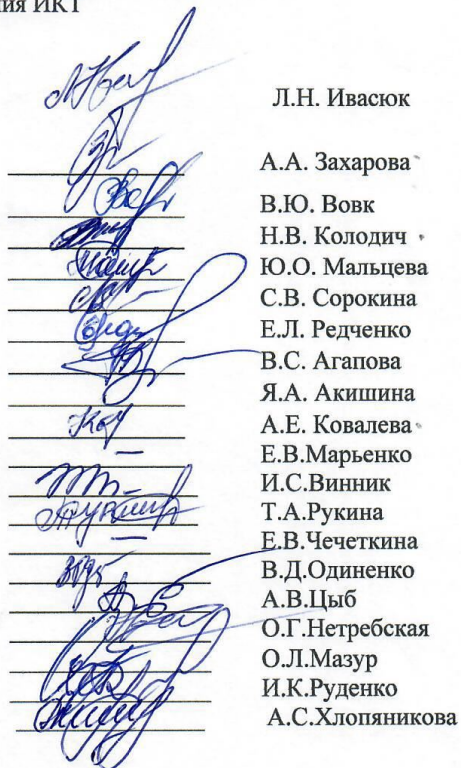 ния ИКТ
Л.Н. Ивасюк
А.А. Захарова
В.Ю. Вовк
Н.В. Колодич
Ю.О. Мальцева
С.В. Сорокина
Е.Л. Редченко
В.С. Агапова
Я.А. Акишина
А.Е. Ковалева
Е.В.Марьенко
И.С.Винник
Т.А.Рукина
Е.В.Чечеткина
В.Д.Одиненко
А.В.Цыб
О.Г.Нетребская
О.Л.Мазур
И.К.Руденко
А.С.Хлопяникова